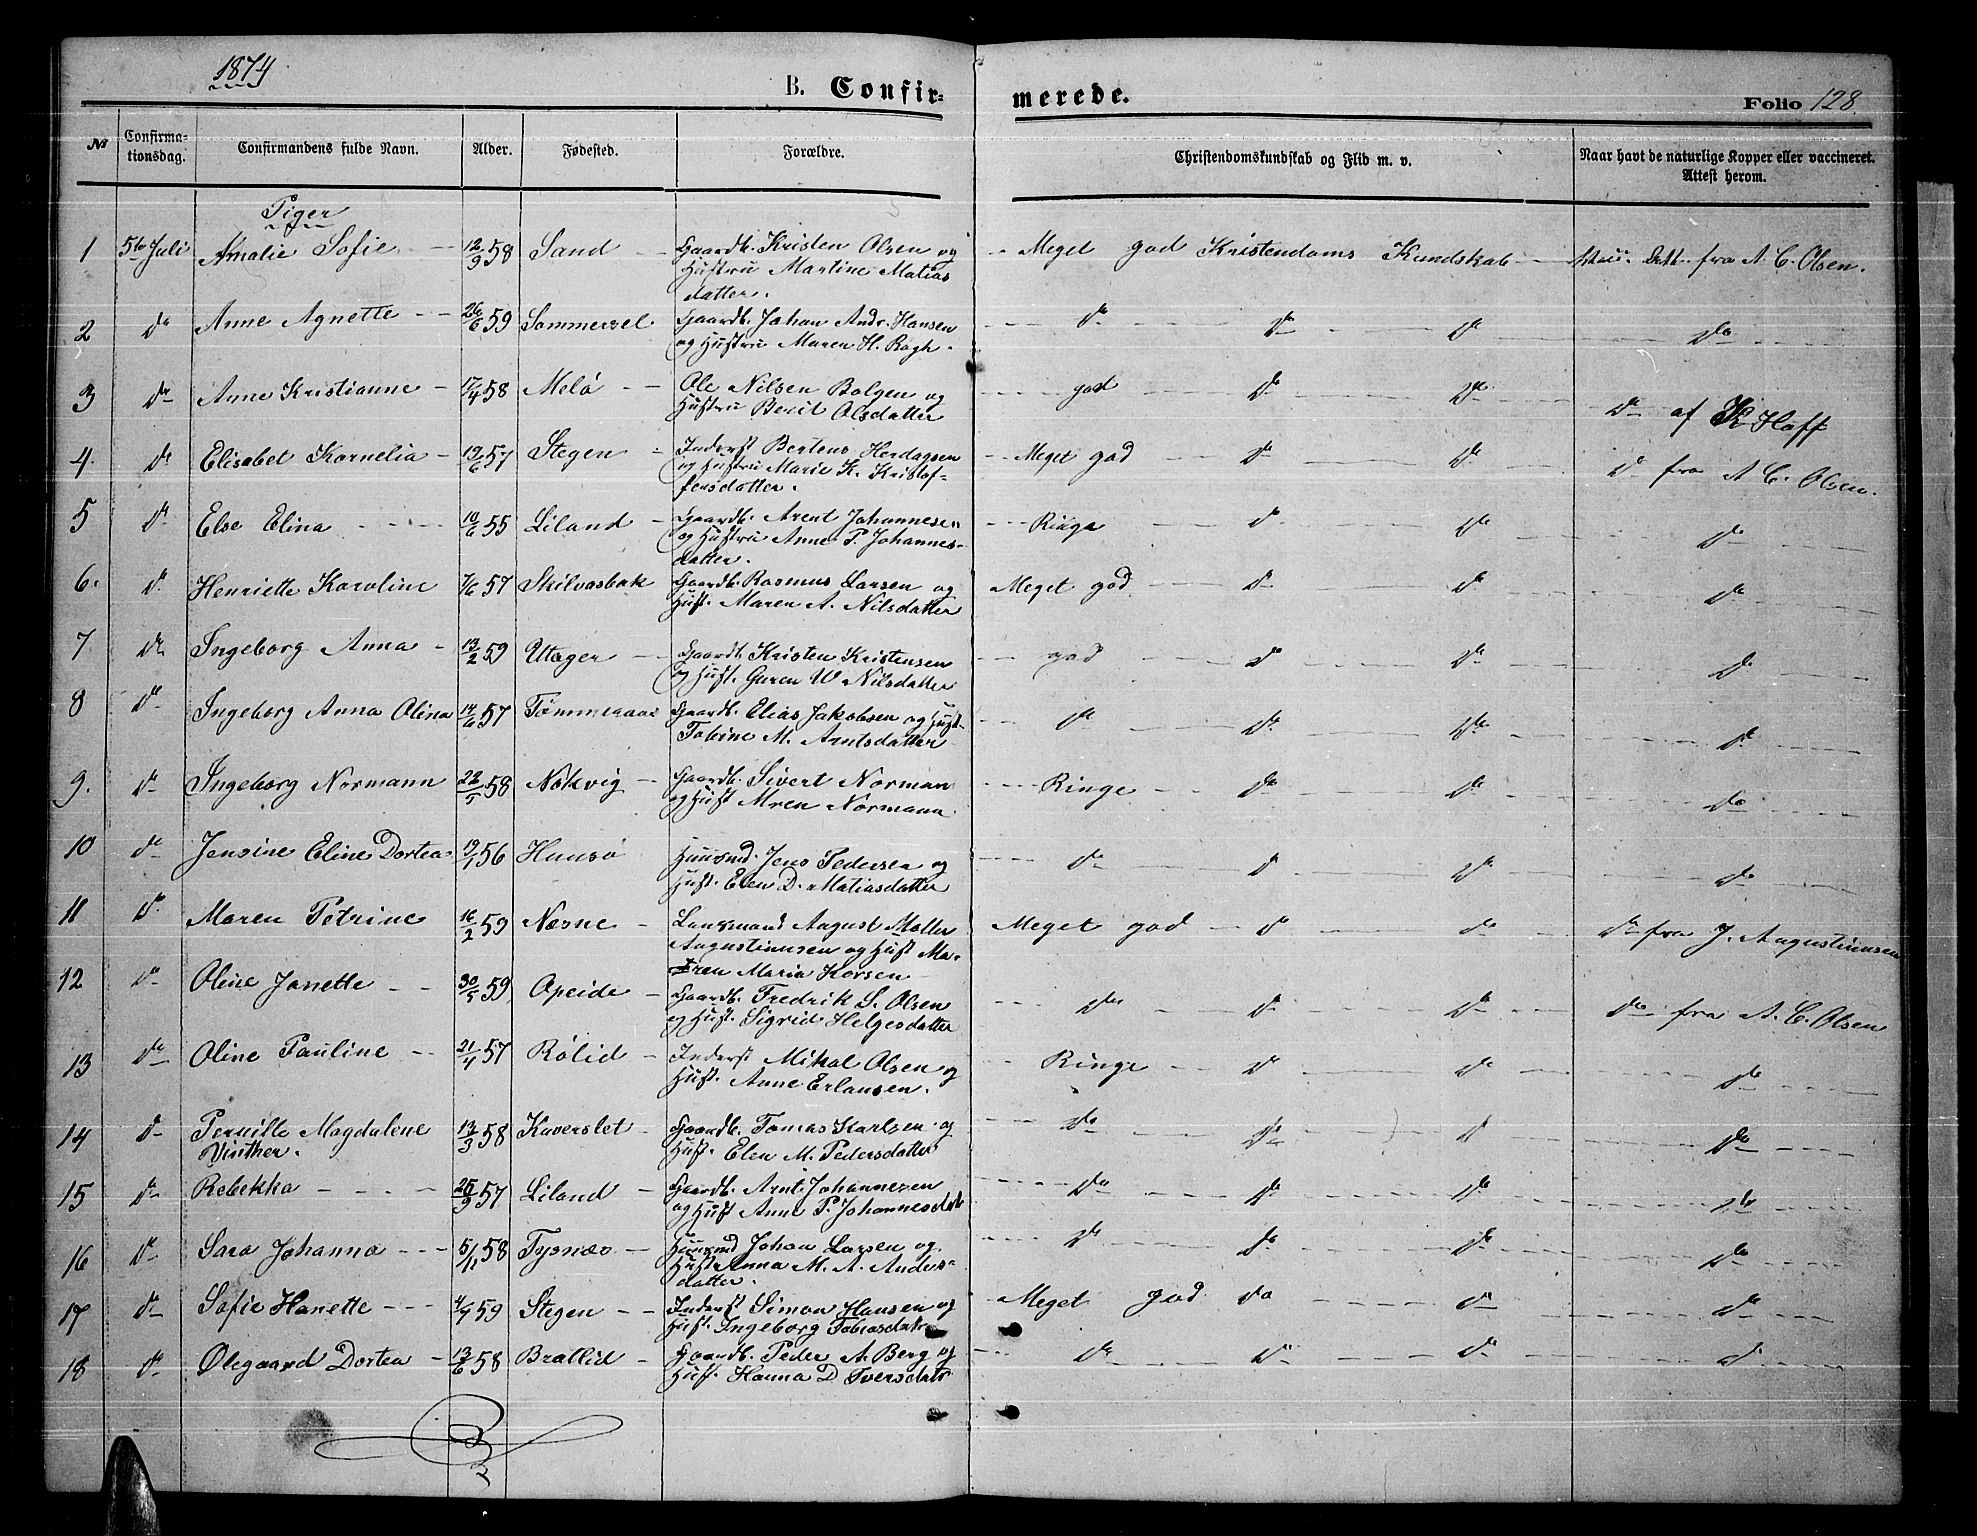 1874
B. Confirmerede.
Folio 128.
No
Confirmationsdag.
Confirmandens fulde Navn.
Alder.
Fødested.
Forældre.
Christendomskundskab og Flid m. v.
Naar havt de naturlige Kopper eller vaccineret. Attest herom.
Piger
1 5te Juli Amalie Sofie 12/9 58 Sand Gaardb. Kristen Olsen og Meget god Kristendoms Kundskab Dett. fra A. C. Olsen.
Hustru Martine Matias
datter.
2 do Anne Agnette 26/6 59 Sommersel Gaardb. Johan Andr. Hansen do do do do
og Hustru Maren H. Ragh.
3 do Anne Kristianne 17/4 58 Melö Ole Nilsen Bolgen og god do do do af K Hoff
Hustru Berit Olsdatter
4. do Elisabet Kornelia 19/6 57 Stegen Inderst Bertens Herdagsen Meget god do do do fra A C. Olsen.
og Hustru Marie K. Kristof-
fersdatter.
5 do Else Elina 10/6 55 Liland Gaardb. Arent Johannesen Ringe do do do
og Hustru Anne P. Johannes-
datter.
6. do Henriette Karoline 7/6 57 Skilvasbak Gaardb. Rasmus Larsen og Meget god do do do
Hust. Maren A. Nilsdatter
7. do Ingeborg Anna 13/2 59 Uteger Gaardb. Kristen Kristensen god do do do
og Hust. Guren W Nilsdatter
8 do Ingeborg Anna Olina 14/6 57 Gaardb. Elias Jakobsen og Hust. do do do do
Tobine M. Arntsdatter
9. do Ingeborg Normann 22/5 58 Nökvig Gaardb. Sivert Norman Ringe do do do
og Hust Mren Normann
10 do Jensine Eline Dortea 56 Huusmd Jens Pedersen og do do do do
Hust. Elen D. Matiasdatter
11 do Maren Petrine 16/2 59 Næsne Lensmand August Møller Meget god do do do fra J. Augustinusen
Augustinusen og Hust Ma-
ren Maria Korsen
12 do Oline Janette 30/5 59 Opeide Gaardb. Fredrik S. Olsen do do do do fra A. C. Olsen
og Hust. Sigrid Helgesdatter
13 do Oline Pauline 21/4 57 Rölid Inderst Mikal Olsen og Ringe do do do
Hust. Anne Erlansen.
14 do Pernille Magdalene 13/3 58 Kaverslet Gaardb. Tomas Karlsen og do do do do
Vinther. Hust. Elen M. Pedersdatter
15 do Rebekka 25/9 57 Liland Gaardb. Arnt Johannesen do do do do
og Hust Anne P. Johannesdatr
16 do Sara Johanna 5/11 58 Tysnæs Huusmd Johan Larsen og do do do do
Hust Anna M. A. Anders-
datter.
17 do Sofie Hanette 4/7 59 Stegen Inderst Simon Hansen og Meget god do do do
Hust. Ingeborg Tobiasdatr
18 do Olegaard Dortea 13/6 58 Brallid Gaardb. Peder A. Berg og do do do do
Hust. Hanna D Iversdatr